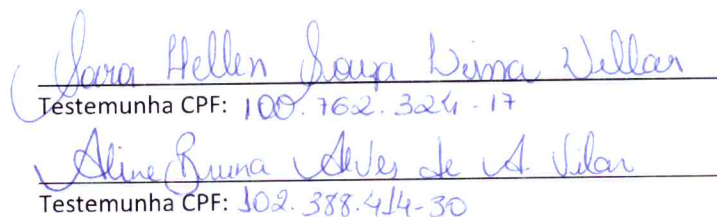 Sara Hellen Souza Lima Villar
Testemunha CPF: 100.762.324-17
Aline Bruna Alves de A. Vilar
Testemunha CPF: 102.388.414-30